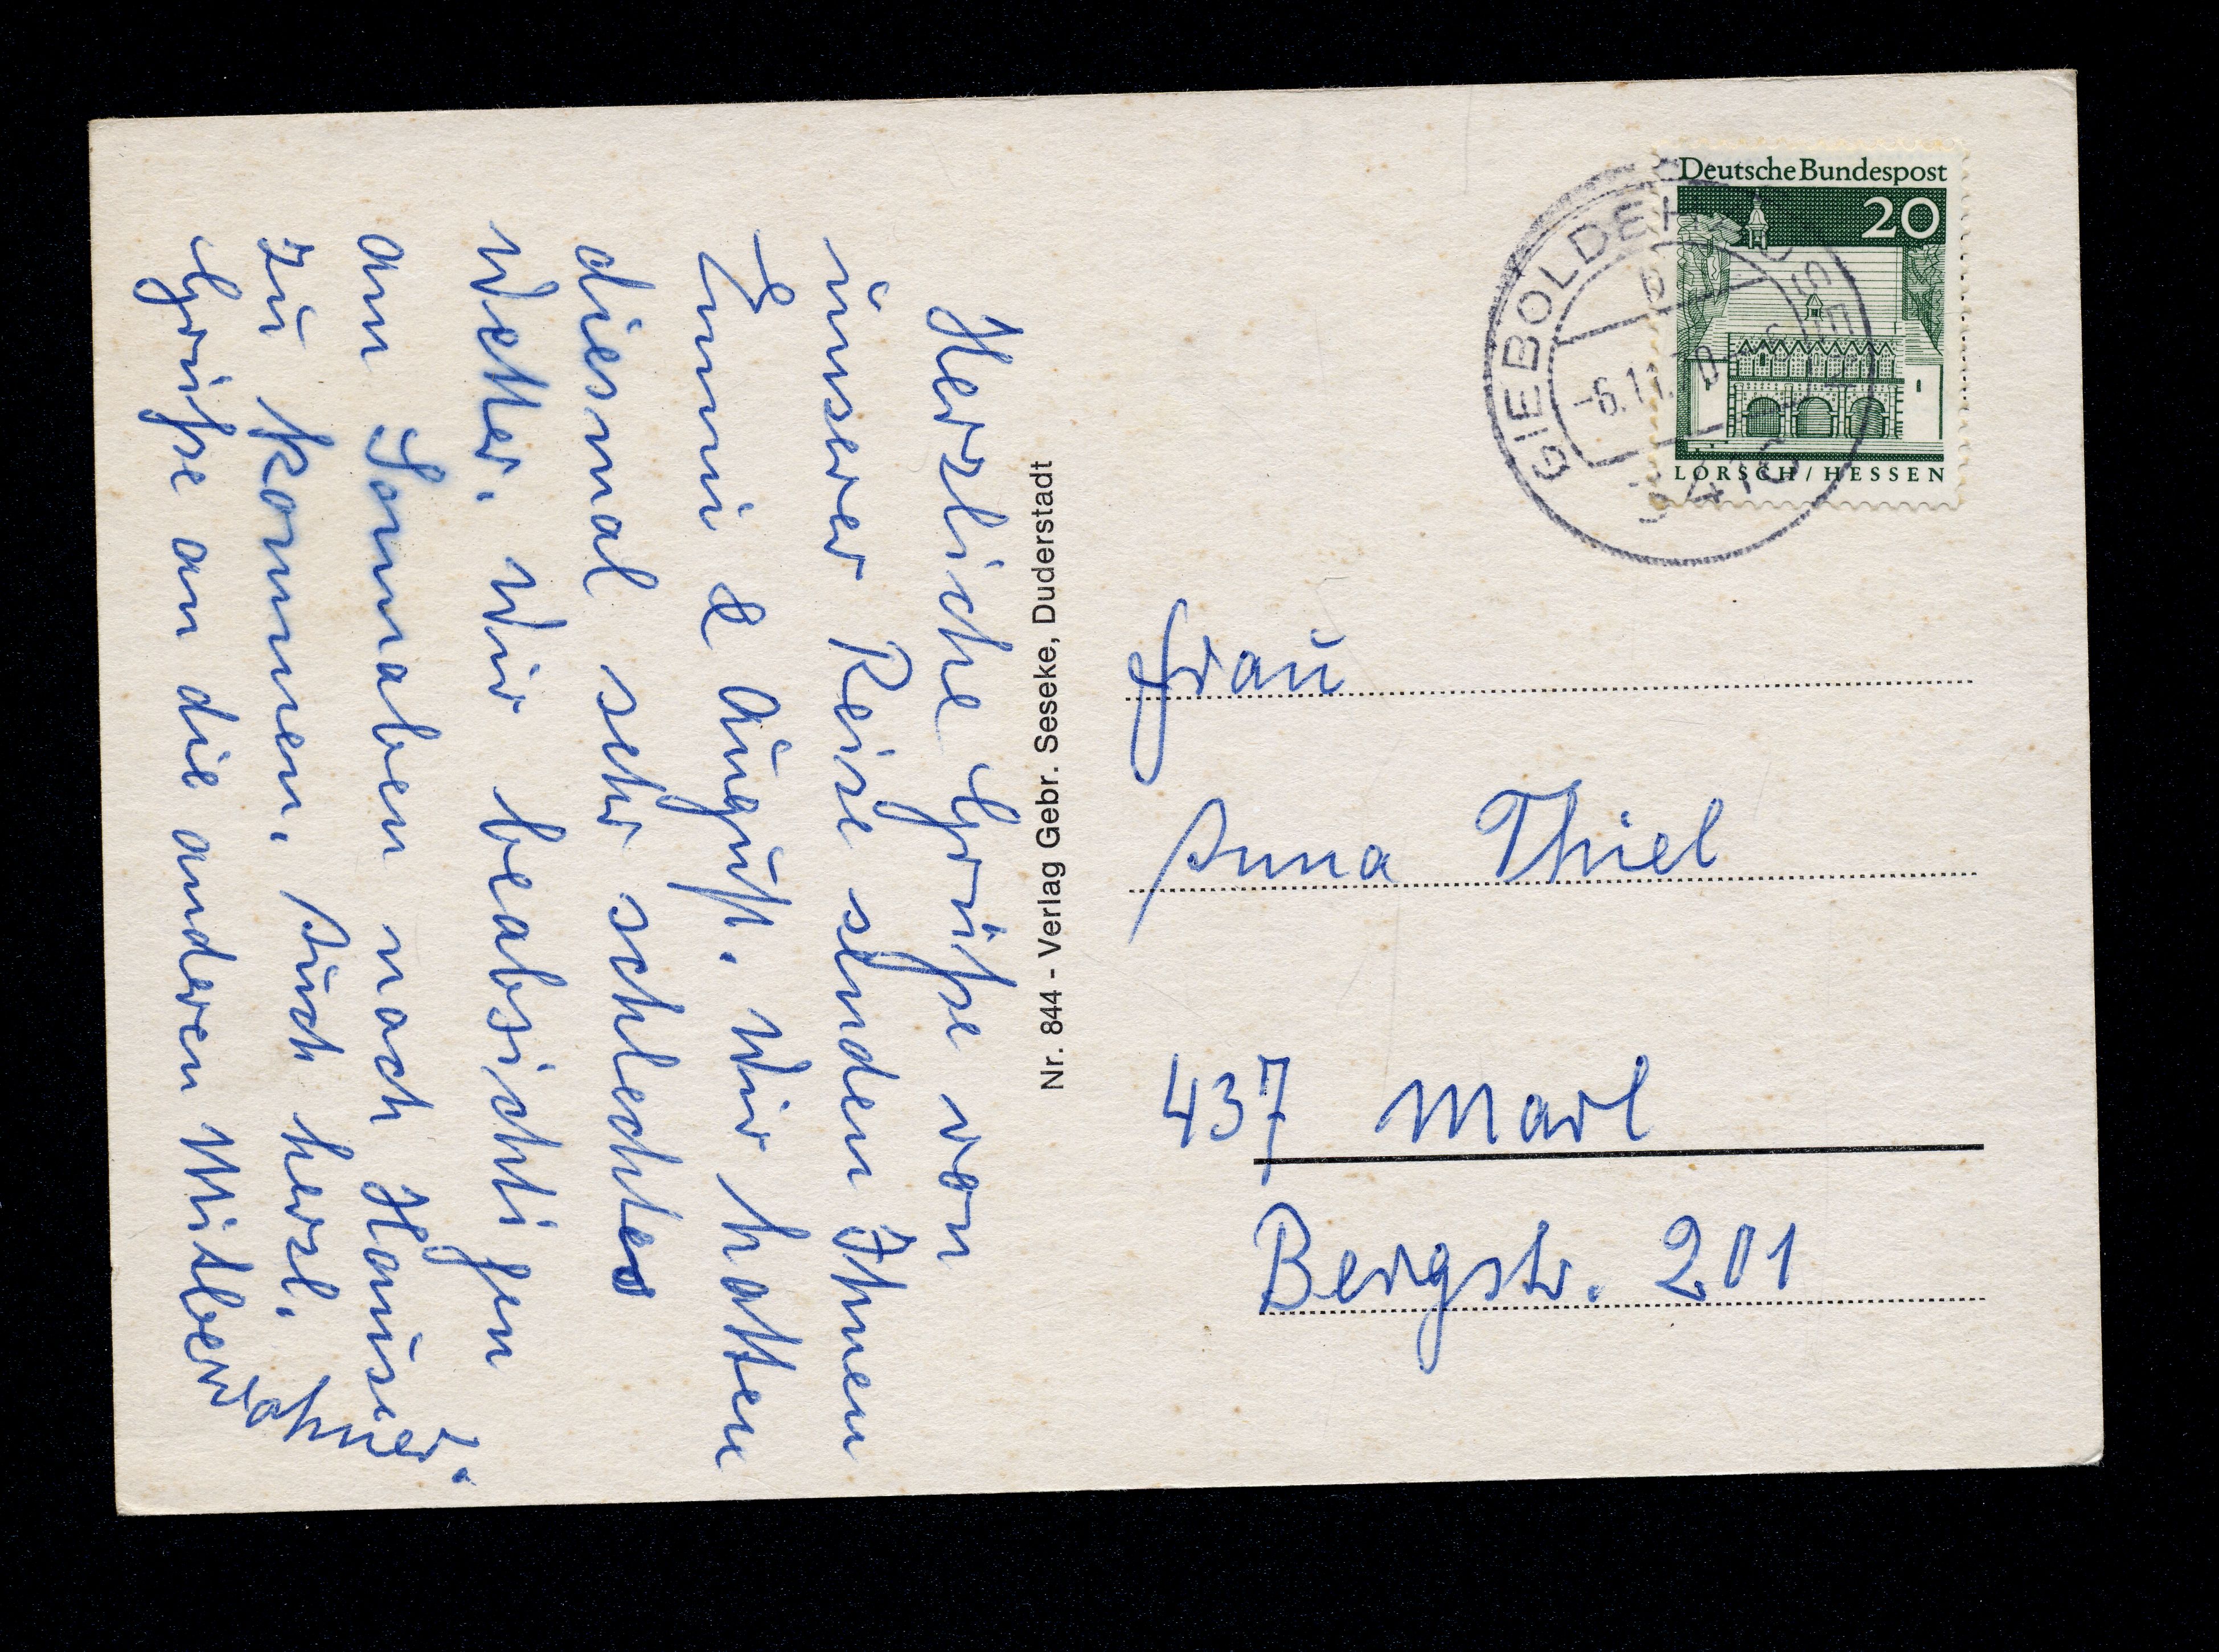 Herzliche Grüße von
unserer Reise senden Ihnen
Emmi & August. Wir hatten
diesmal sehr schlechtes
Wetter. Wir beabsichtigen
am Sonnaben nach Hause
zu kommen. Auch herzl.
Grüße an die anderen Mitbewohner.
Nr. 844 - Verlag Gebr. Seseke, Duderstadt
Deutsche Bundespost
20
LORSCH / HESSEN
GIEBOLDEHAUSEN
-6.11.70
3412
Frau
Anna Thiel
437 Marl
Bergstr. 201